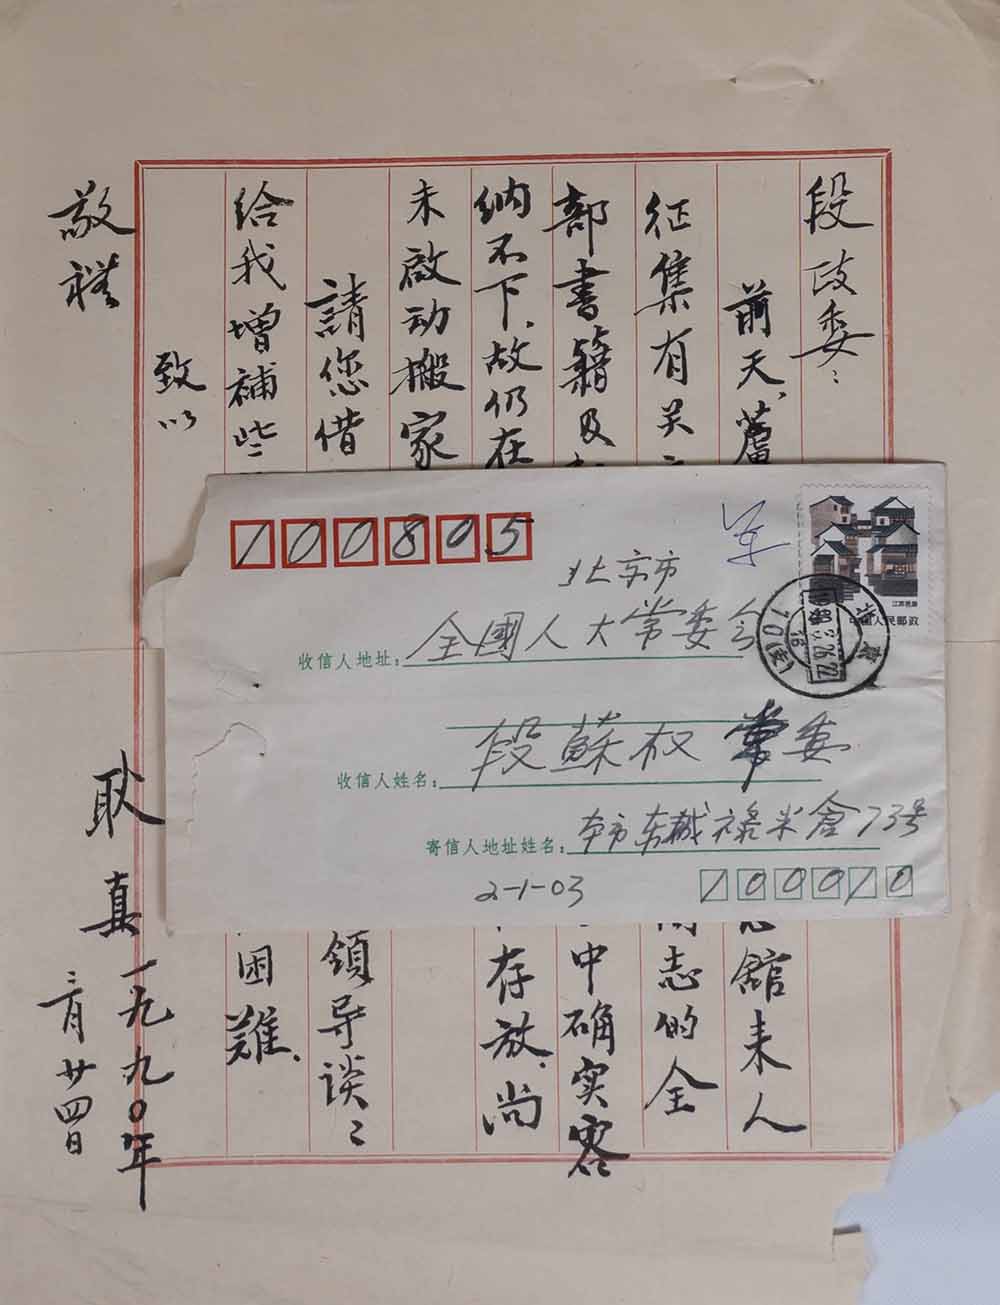 段政委：
前天，蘆
館来人
征集有关
同志的全
部書籍及
中确实容
纳不下，故仍在
存放，尚
未啟动搬家
請您借
領导谈谈
给我增補些
困難、
致以
敬禮
耿真
一九九〇年
三月廿四日
100805
北京市
收信人地址：全國人大常委会
收信人姓名：段蘇权 常委
寄信人地址姓名：本市东城禄米倉73号
2-1-03
100010
江苏民居
中国人民邮政
北京